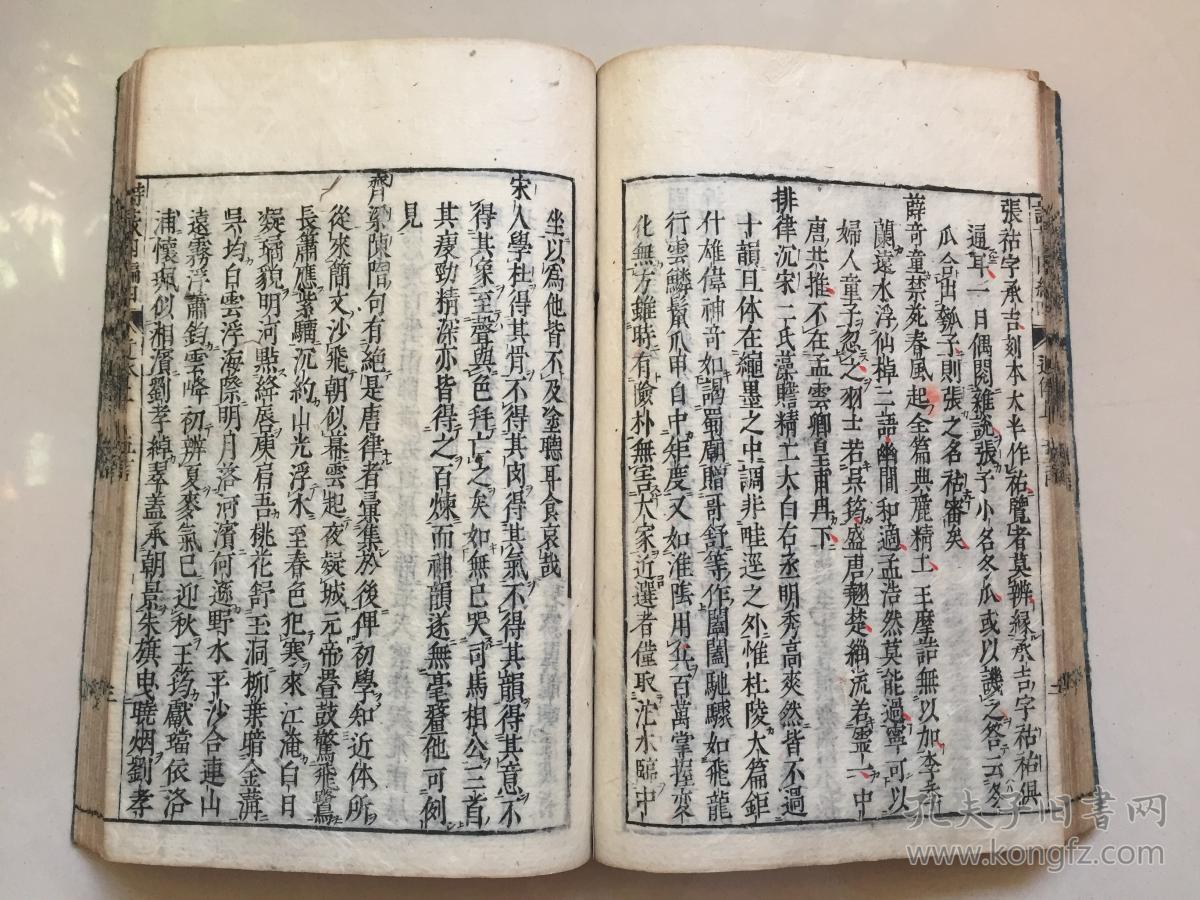 張祜字承吉刻本大半作祐覽者莫辨緣承吉字祜祐俱
通耳一日偶閱雜說張子小名冬瓜或以譏之答云冬
瓜合出瓠子則張之名祜審矣
薛奇童禁死春風起全篇典麗精工王摩詰無以加李季
蘭遠水浮仙棹二語幽閒和適孟浩然莫能過寧可以
婦人童子忽之羽士若吳筠盛唐翹楚緇流若靈一中
唐共推不在孟雲卿皇甫冉下
排律沉宋二氏藻贍精工太白右丞明秀高爽然皆不過
十韻且体在繩墨之中調非畦逕之外惟杜陵大篇鉅
什雄偉神奇如謁蜀廟贈哥舒等作闔闢馳驟如飛龍
行雲鱗鬣爪甲自中矩度又如淮陰用兵百萬掌握変
化無方雖時有險朴無害大家近選者僅取沱水臨中
坐以為他皆不及塗聽耳食哀哉
宋人學杜得其骨不得其肉得其氣不得其韻得其意不
得其象至聲與色并亡之矣如無己哭司馬相公三首
其瘦勁精深亦皆得之百煉而神韻遂無毫釐他可例
見
齊梁陳隋句有絕是唐律者彙集於後俾初學知近体所
從來簡文沙飛朝似幕雲起夜疑城元帝疊鼓驚飛鷺
長簫應紫騮沉約山光浮水至春色犯寒來江淹白日
凝瓊貌明河點絳唇庾肩吾桃花舒玉洞柳葉暗金溝
吳均白雲浮海際明月落河濱何遜野水平沙合連山
遠霧浮蕭鈞雲峰初辨夏麥氣已迎秋王筠獻璫依洛
浦懷珮似相濱劉孝綽翠蓋承朝景朱旗曳曉烟劉孝
孔夫子旧书网
www.kongfz.com